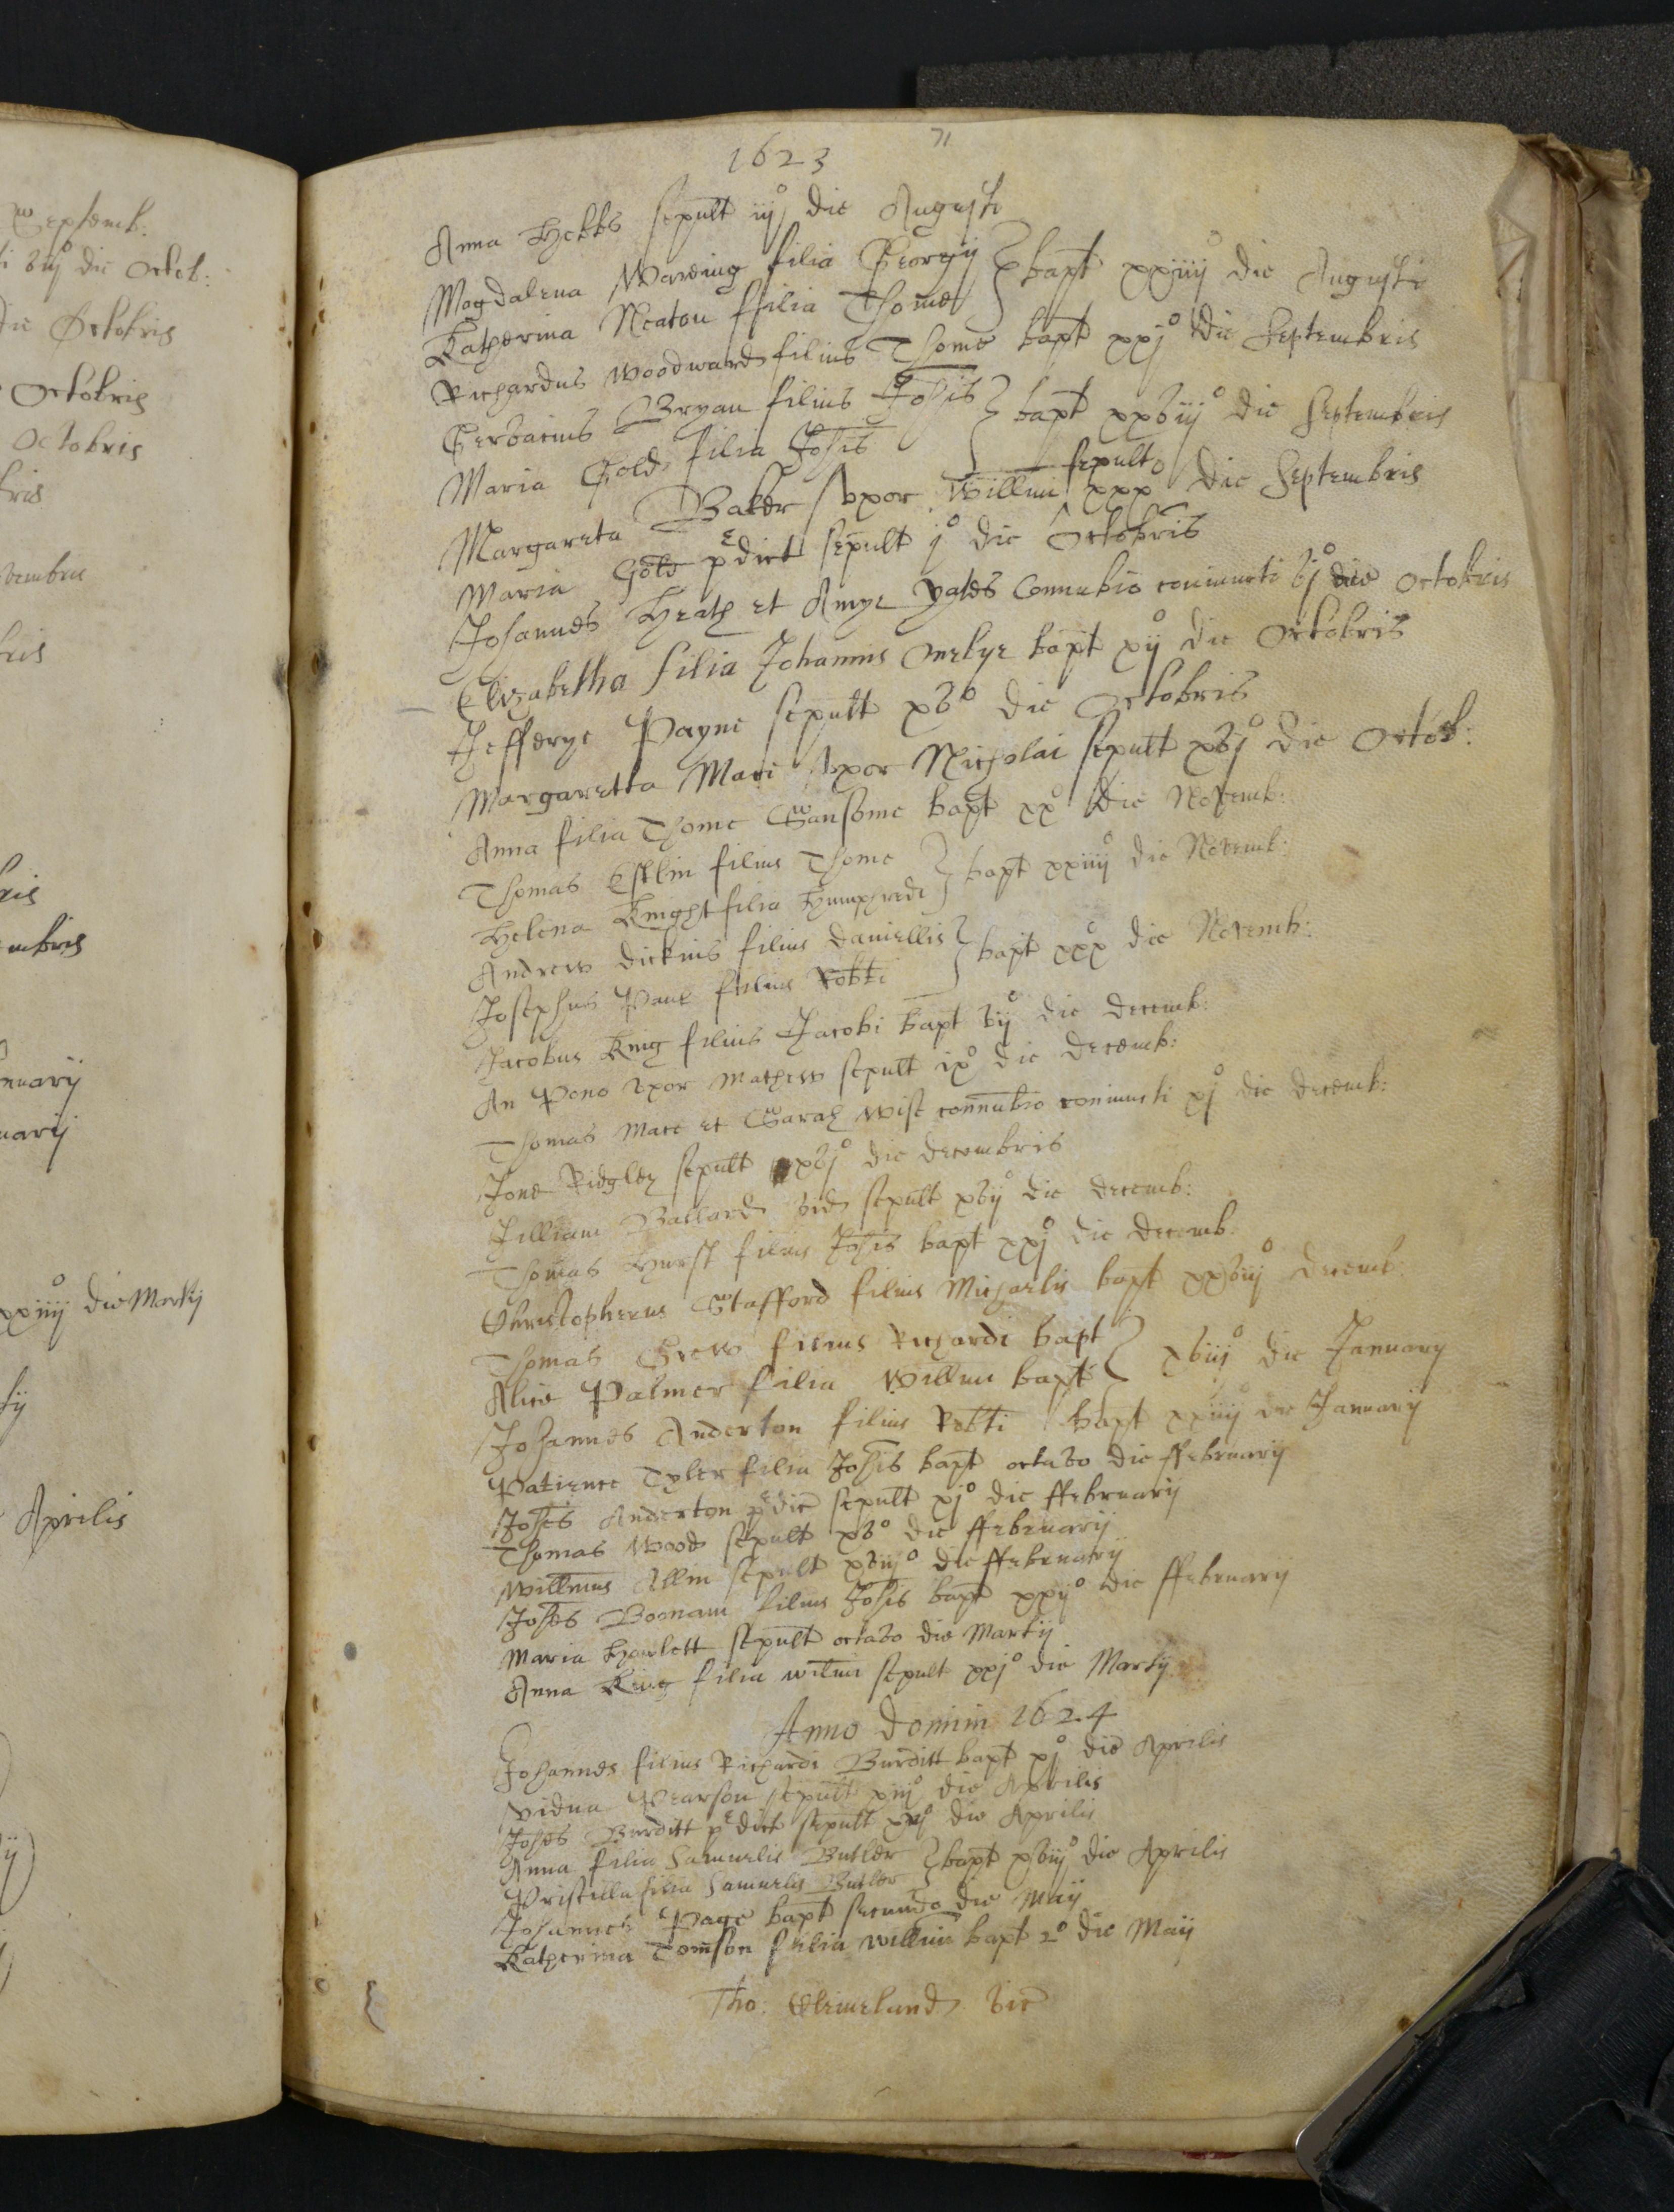 eptemb:
i vij° die Octob:
die Octobris
Octobris
Octobris
bris
vembris
bris
bris
embris
nuarij
uarij
xxiiij° die Martij
Aprilis
71
1623
Anna Hebbs sepult iij° die Augusti
Magdalena Wareing filia Georgij } bapt xxiiij° die Augusti
Katherina Neaton ffilia Thome
Richardus Woodward filius Thome bapt xxj° die Septembris
Gervacius Bryan filius Johis } bapt xxviij° die Septembris
Maria Gold filia Johis
Margareta Baker uxor Willmi sepult xxx° die Septembris
Maria Gold pdict sepult j° die Octobris
Johannes Heath et Amye Yates Connubio coniuncti vj° die Octobris
Elizabetha filia Johannis Onelye bapt xij° die Octobris
Jefferye Payne sepult xv° die Octobris
Margaretta Mari uxor Nicholai sepult xvj° die Octob:
Anna filia Thome Sansome bapt xx° die Novemb:
Thomas Estlin filius Thome } bapt xxiiij° die Novemb:
Helena Knight filia Humphredi
Andrew Dickins filius Daniellis } bapt xxx° die Novemb:
Josephus Paul filius Robti
Jacobus King filius Jacobi bapt vij° die Decemb:
An Pono uxor Mathew sepult ix° die Decemb:
Thomas Mace et Sarah Wist connubio coniuncti xj° die Decemb:
Jone Ridgley sepult xvj° die Decembris
Jilliam Ballard vid sepult xvij° die Decemb:
Thomas Hurst filius Johis bapt xxj° die Decemb.
Christopherus Stafford filius Michaelis bapt xxviij° Decemb:
Thomas Grew filius Richardi bapt } xviij° die January
Alice Palmer filia Willmi bapt
Johannes Anderton filius Robti bapt xxiiij° die Januarij
Patience Tyler filia Johis bapt octavo die ffebruarij
Johes Anderton pdic sepult xj° die ffebruarij
Thomas Wood sepult xv° die ffebruarij
Willmus Allin sepult xviij° die ffebruarij
Johes Boonam filius Johis bapt xxij° die ffebruarij
Maria Howlett sepult octavo die Martij
Anna King filia Willmi sepult xxj° die Martij
Anno Domini 1624
Johannes filius Richardi Burditt bapt xj° die Aprilis
Vidua Pearson sepult xiij° die Aprilis
Johes Burditt pdict sepult die Aprilis
Anna filia Samuelis Butler } bapt xviij° die Aprilis
Priscilla filia Samuelis Butler
Johannes Page bapt secundo die Maij
Katherina Tomson filia Willmi bapt 2° die Maij
Tho: Cleiveland vic